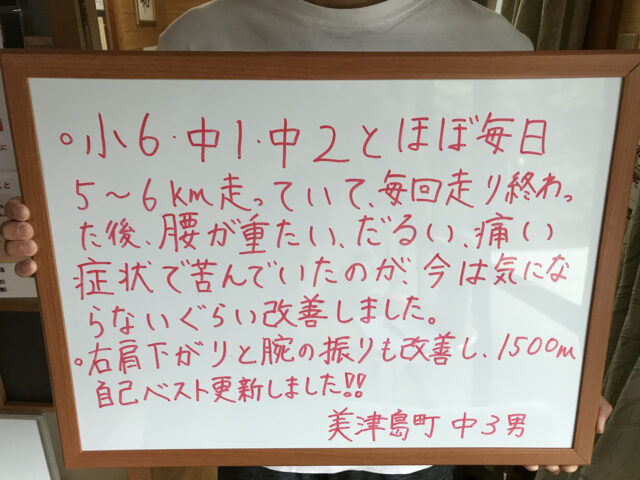 。小6・中1・中2とほぼ毎日
5〜6km走っていて、毎回走り終わっ
た後、腰が重たい、だるい、痛い
症状で苦んでいたのが、今は気にな
らないぐらい改善しました。
。右肩下がりと腕の振りも改善し、1500m
自己ベスト更新しました!!
美津島町 中3男